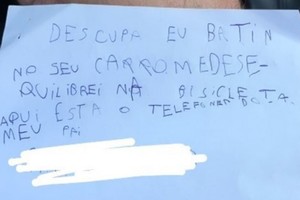 DESCUPA EU BATIN
NO SEU CARRO ME DESE-
QUILIBREI NA BISICLETA.
AQUI ESTA O TELEFONE DO
MEU PAI